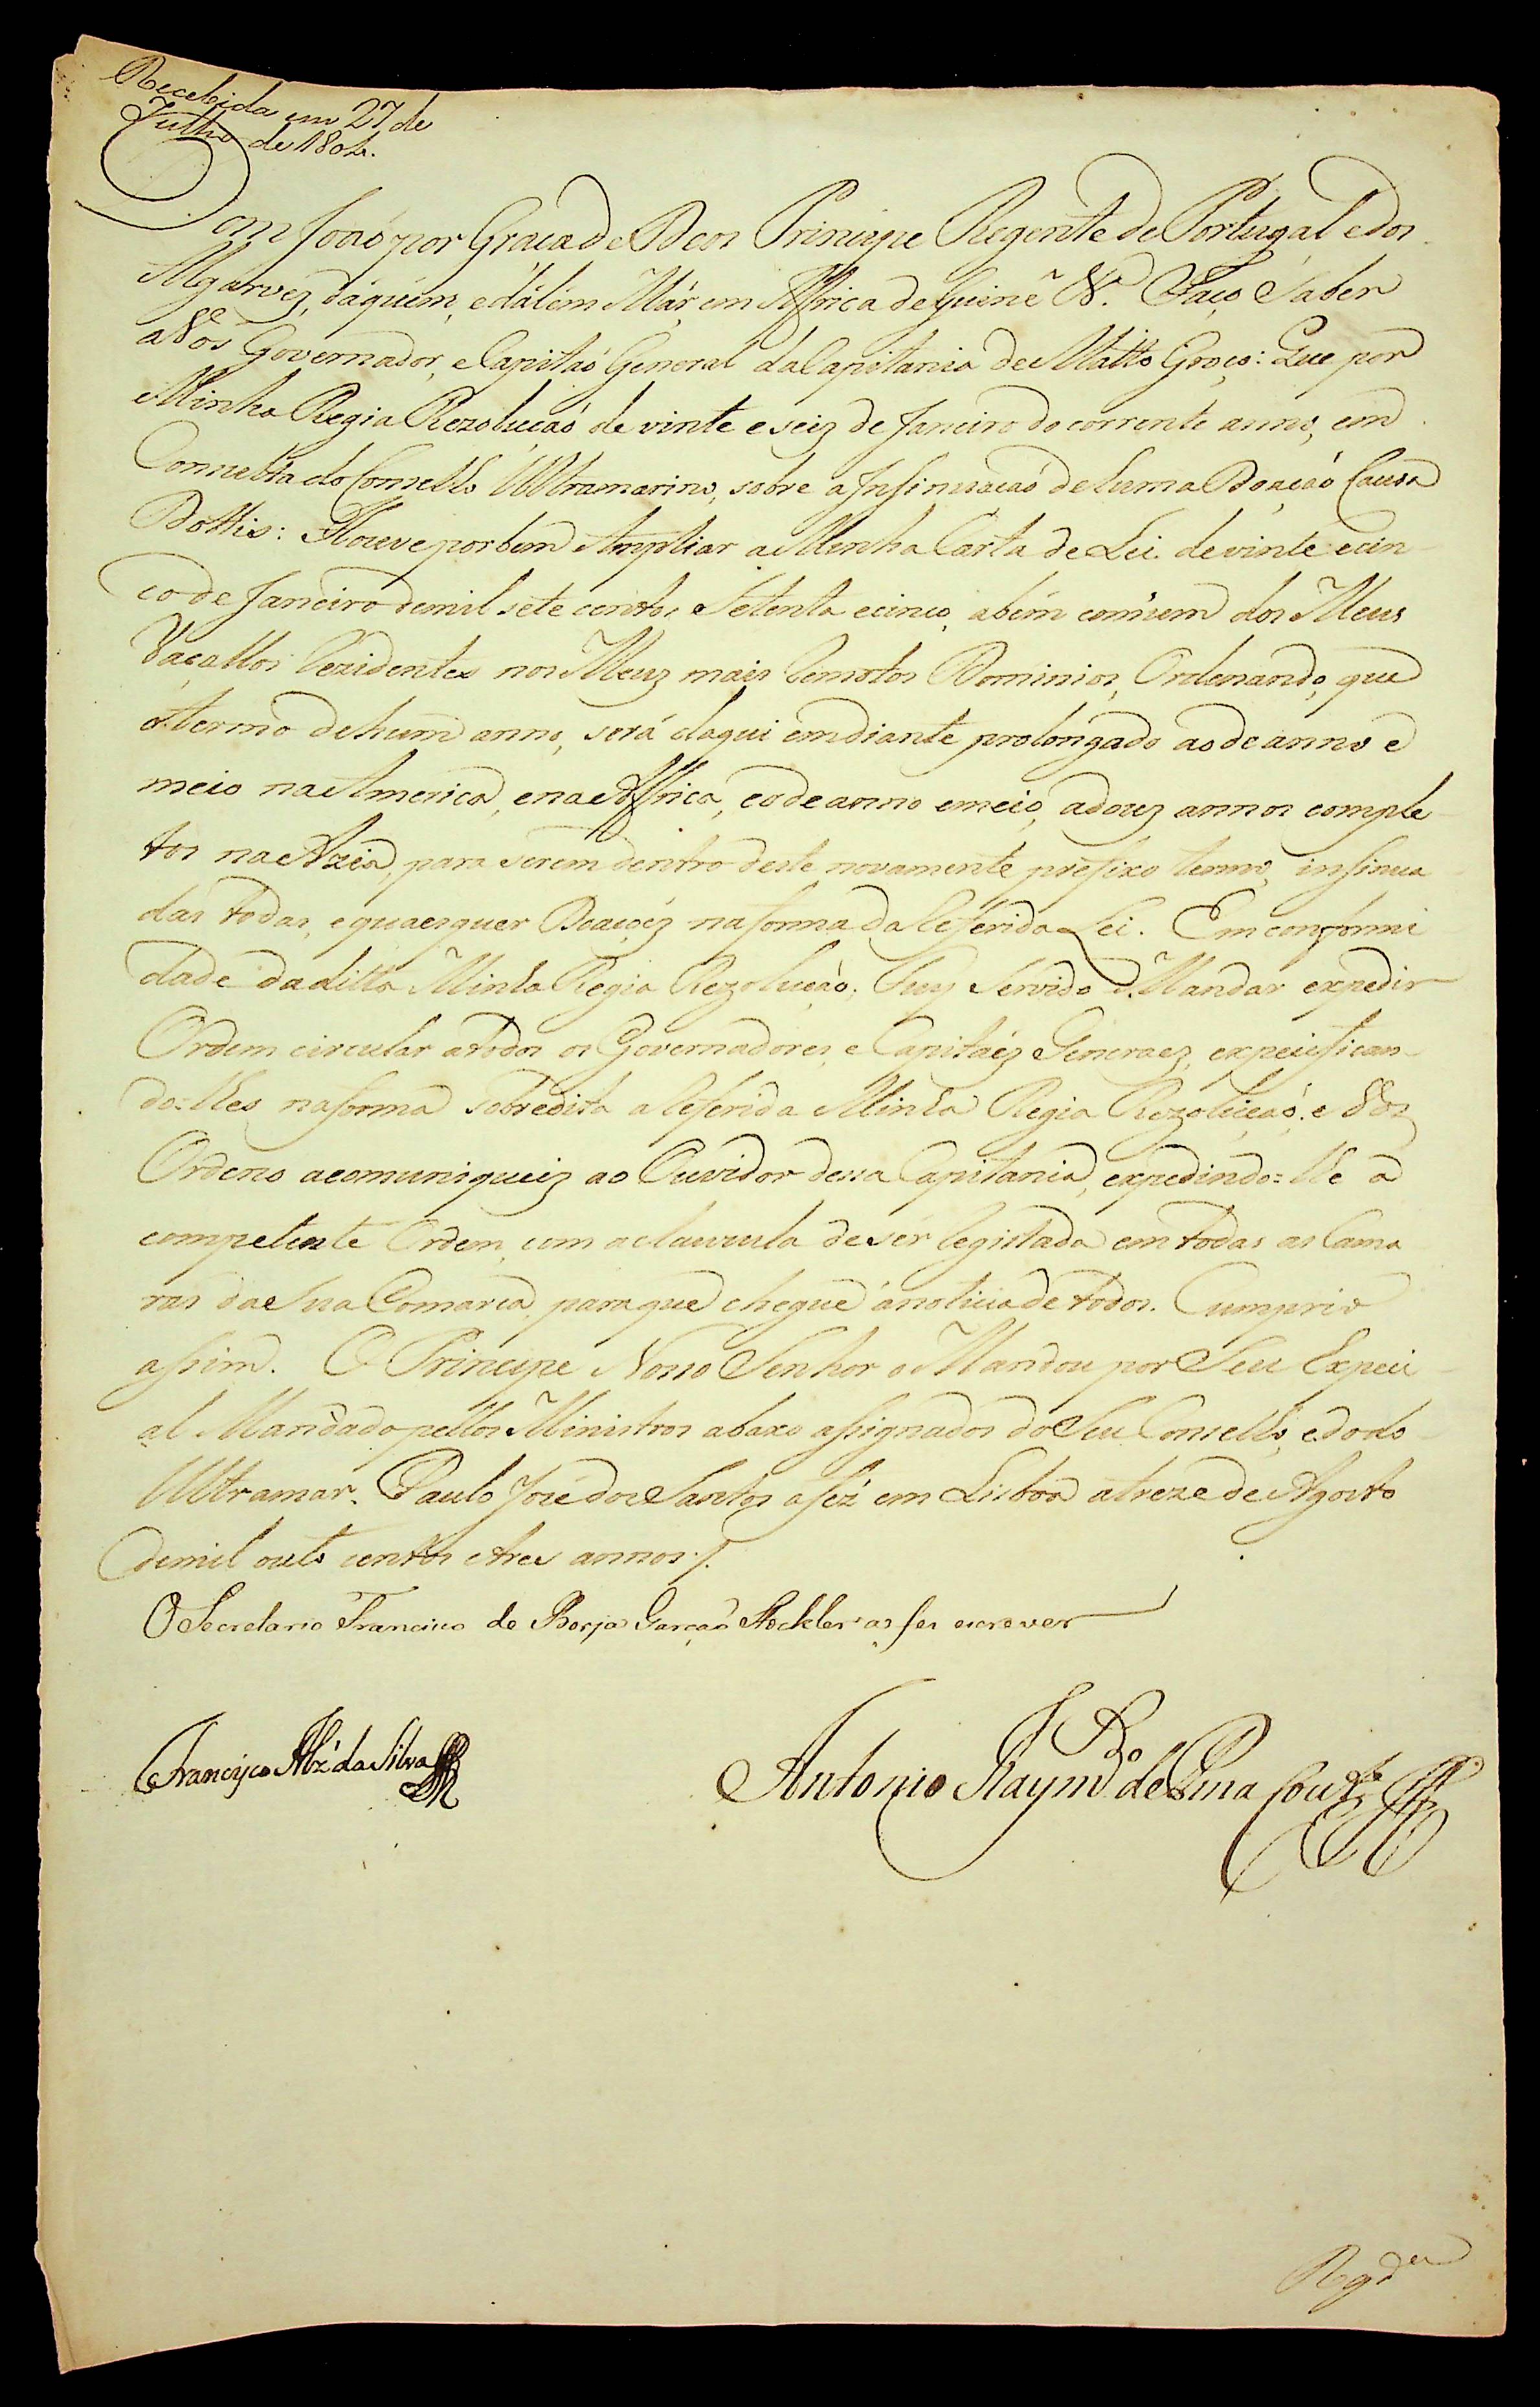 Recebida em 27 de
Julho de 1804.
Dom Joaõ por Graça de Deos Principe Regente de Portugal e dos
Algarvez, dáquem, e dálem Már, em Affrica de Guiné &ª. Faço Saber
a Vós Governador, e Capitaõ General da Capitania de Matto Groço: Que por
Minha Regia Rezoluçaõ de vinte e seiz de Janeiro do corrente anno, em
Consulta do Conselho Ultramarino, sobre a Insinuaçaõ de huma Doaçaõ Cauza
Dottis: Houve por bem Ampliar a Minha Carta de Lei de vinte e cin-
co de Janeiro de mil sete centos Setenta e cinco, a bem comum dos Meus
Vaçallos Rezidentes nos Meuz mais Remotos Dominios, Ordenando, que
o termo de hum anno, será daqui em diante prolongado ao de anno e
meio na America, e na Affrica, e o de anno e meio, a douz annos comple-
tos na Azia, para serem dentro deste novamente prefixo termo, insinua-
das todas, e quaesquer Doaçoẽz na forma da Referida Lei. Em conformi-
dade da ditta Minha Regia Rezoluçaõ; Fuy Servido Mandar expedir
Ordem circular a todos os Governadores, e Capitaẽz Generaez, expecifican-
do=lhes na forma sobredita a Referida Minha Regia Rezoluçaõ: e Vos
Ordeno a comuniqueiz ao Ouvidor dessa Capitania, expedindo=lhe a
competente Ordem, com a clauzula de sér Registada em todas as Cama-
ras da Sua Comarca, para que chegue á noticia de todos. Cumprio
assim. O Principe Nosso Senhor o Mandou por Seu Expeci-
al Mandado pellos Ministros abaxo assignados do Seu Conselho, e do do
Ultramar. Paulo José dos Santos a féz em Lisboa a treze de Agosto
de mil outo centos e tres annos
O Secretario Francisco de Borja Garçaõ Stockler a fes escrever
Francisco Alz' da Silva
Antonio Raymdo de Pina Coutº